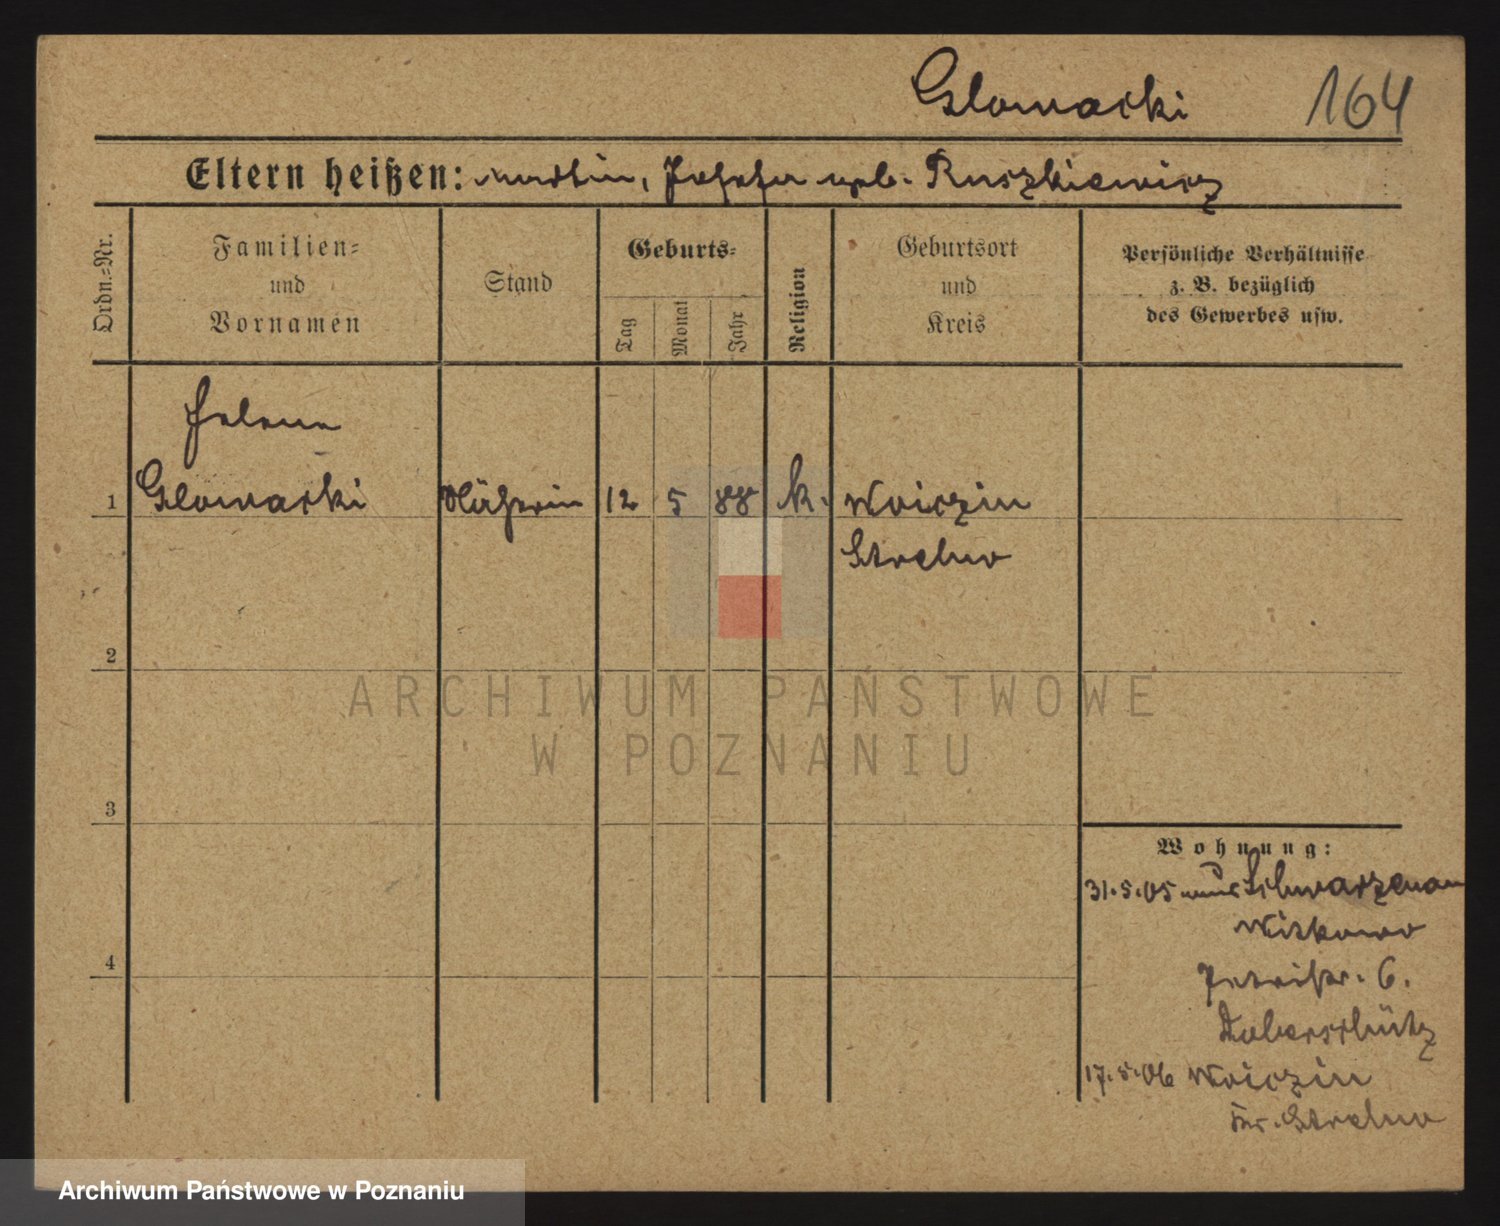 Glowacki 164
Eltern heißen: Martin, Josefa geb. Ruszkiewicz
Ordn.-Nr.
Familien-
und
Vornamen
Stand
Geburts-
Tag
Monat
Jahr
Religion
Geburtsort
und
Kreis
Persönliche Verhältnisse
z. B. bezüglich
des Gewerbes usw.
Helene
1 Glowacki Näherin 12 5 88 k. Woiczin
Strelno
2
ARCHIWUM PAŃSTWOWE
W POZNANIU
3
Wohnung:
31.5.05 aus Schwarzenau
Witkowo
Petristr. 6.
Haberschütz
17.5.06 Woiczin
Kr. Strelno
4
Archiwum Państwowe w Poznaniu